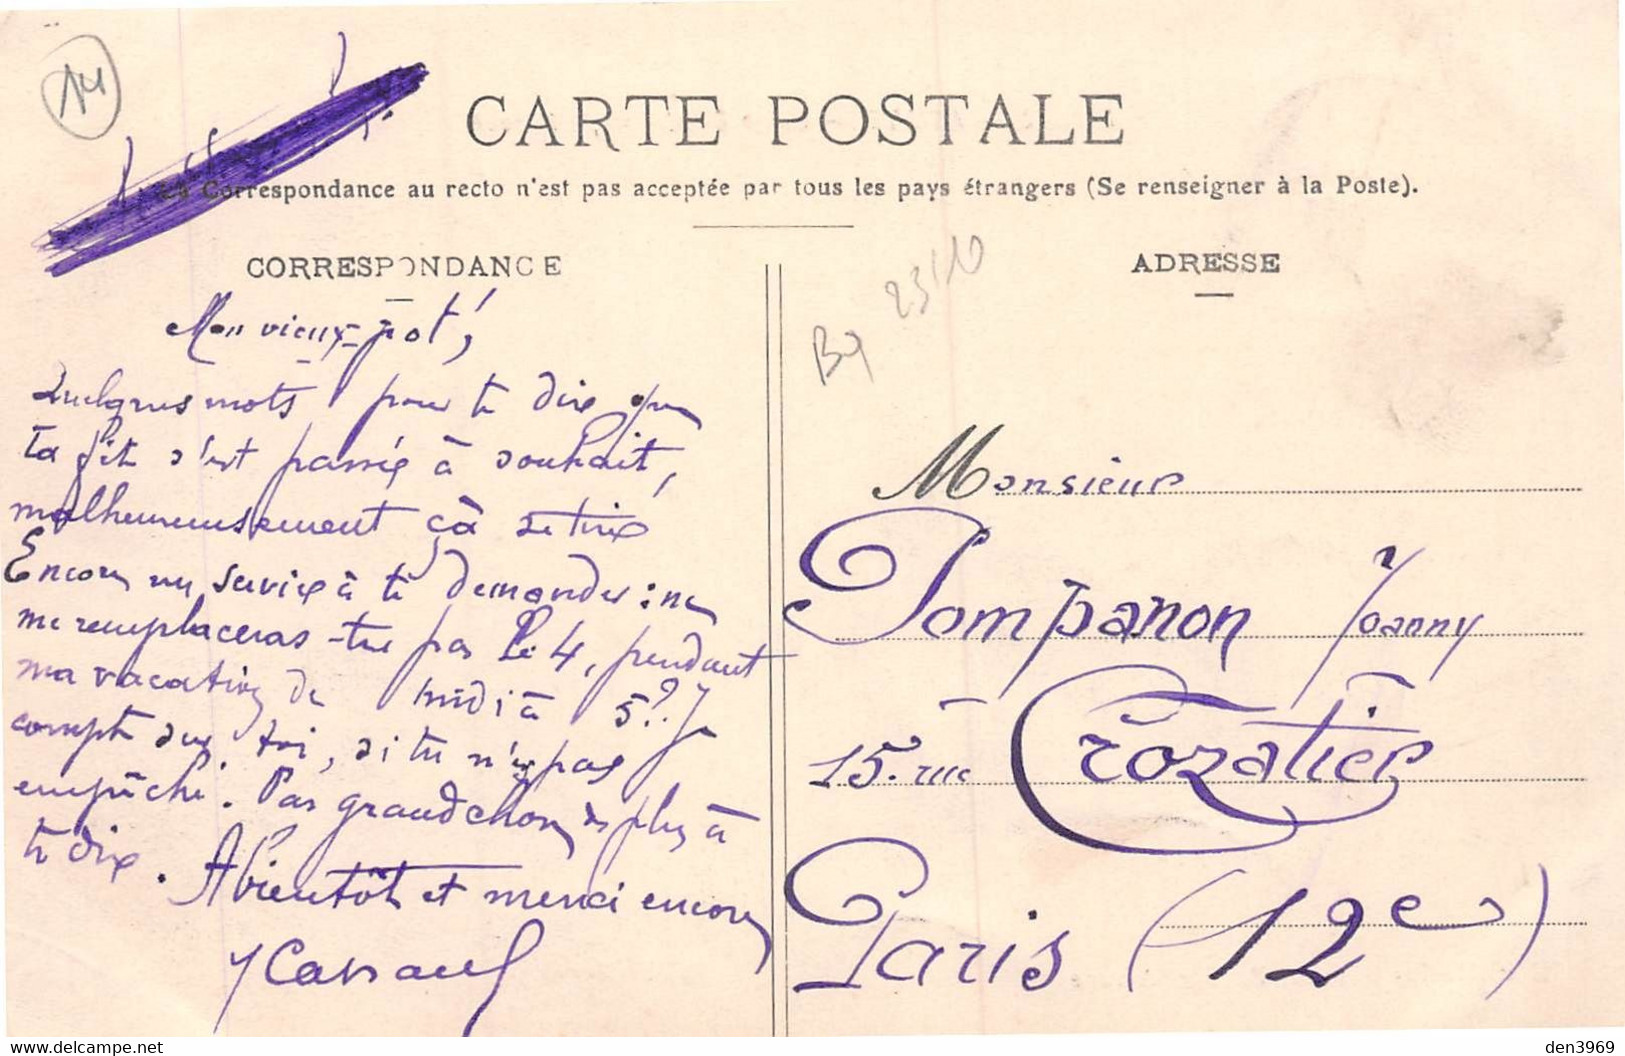 14
CARTE POSTALE
La Correspondance au recto n'est pas acceptée par tous les pays étrangers (Se renseigner à la Poste).
CORRESPONDANCE
Mon vieux pot',
Quelques mots pour te dire que
ta fête s'est passée à souhait,
malheureusement çà se tire
Encore un service à te demander : ne
me remplaceras-tu pas le 4, pendant
ma vacation de midi à 5 ?. Je
compte sur toi, si tu n'es pas
empêché. Pas grand chose de plus à
te dire.
A bientôt et merci encore
ADRESSE
23/10
Monsieur
Pompanon Joanny
15. rue Crozatier
Paris (12e)
den3969
www.delcampe.net